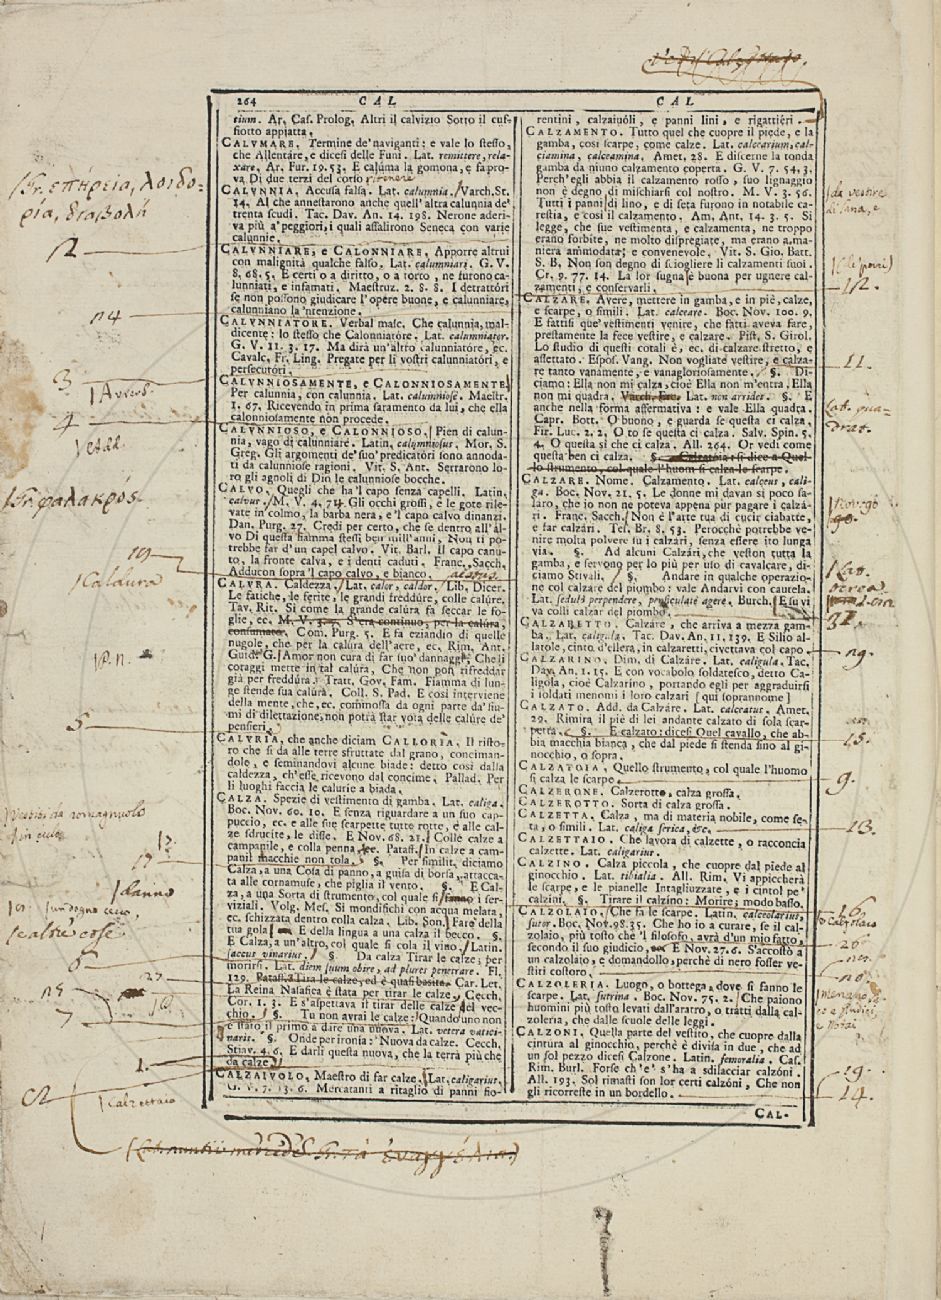 264 CAL CAL
tium. Ar. Cas. Prolog. Altri il calvizio Sotto il cuf-
fiotto appiatta.
CALUMARE. Termine de'naviganti: e vale lo stesso,
che Allentare, e dicesi delle Funi. Lat. remittere, rela-
xare, Ar. Fur. 19. 53. E caluma la gomona, e fa pro-
va Di due terzi del corso ritenere
CALUNNIA, Accusa falsa. Lat. calumnia. Varch. St.
14. Al che annestarono anche quell'altra calunnia de'
trenta scudi. Tac. Dav. An. 14. 198. Nerone aderi-
va più a'peggiori, i quali assalirono Seneca con varie
calunnie.
CALUNNIARE, e CALONNIARE, Apporre altrui
con malignità qualche falso. Lat. calumniari. G. V.
8. 68. 5. E certi o a diritto, o a torto, ne furono ca-
lunniati, e infamati. Maestruz. 2. 8. 8. I detrattori
se non possono giudicare l'opere buone, e calunniare,
calunniano la 'ntenzione.
CALUNNIATORE. Verbal masc. Che calunnia, mal-
dicente: lo stesso che Calonniatóre. Lat. calumniator.
G. V. 11. 3. 17. Ma dirà un'altro calunniatóre, ec.
Cavalc. Fr. Ling. Pregate per li vostri calunniatóri, e
persecutori.
CALUNNIOSAMENTE, e CALONNIOSAMENTE
Per calunnia, con calunnia. Lat. calumniosè. Maestr.
1. 67. Ricevendo in prima saramento da lui, che ella
calonniosamente non procede.
CALUNNIOSO, e CALONNIOSO, Pien di calun-
nia, vago di calunniare. Latin. calumniosus. Mor. S.
Greg. Gli argomenti de'suo'predicatóri sono annoda-
ti da calunniose ragioni. Vit. S. Ant. Serrarono lo-
ro gli agnoli di Dio le calunniose bocche.
CALVO, Quegli che ha'l capo senza capelli. Latin.
calvus. M. V. 4. 74. Gli occhi grossi, e le gote rile-
vate in colmo, la barba nera, e'l capo calvo dinanzi.
Dan. Purg. 27. Credi per certo, che se dentro all'al-
vo Di questa fiamma stessi ben mill'anni, Non ti po-
trebbe far d'un capel calvo. Vit. Barl. Il capo canu-
to, la fronte calva, e i denti caduti. Franc. Sacch.
Adducon sopra'l capo calvo, e bianco.
CALURA. Caldezza. Lat. calor, caldor. Lib. Dicer.
Le fatiche, le ferite, le grandi freddúre, colle calúre.
Tav. Rit. Si come la grande calúra fa seccar le fo-
glie, ec. M. V. S'era continuo, per la calúra,
consumato. Com. Purg. 5. E fa eziandio di quelle
nugole, che per la calúra dell'aere, ec. Rim. Ant.
Guid. G. Amor non cura di far suo'dannaggi, Che li
coraggi mette in tal calúra, Che non pon rifreddar
già per freddúra. Tratt. Gov. Fam. Fiamma di lun-
ge stende sua calúra. Coll. S. Pad. E così interviene
della mente, che, ec. commossa da ogni parte da'fiu-
mi di dilettazione, non potrà star vota delle calúre de'
pensieri.
CALURIA, che anche diciam CALLORIA. Il risto-
ro che si da alle terre sfruttate dal grano, conciman-
dole, e seminandovi alcune biade: detto così dalla
caldezza, ch'esse ricevono dal concime. Pallad. Per
li luoghi faccia le calurie a biada.
CALZA. Spezie di vestimento di gamba. Lat. caliga.
Boc. Nov. 60. 10. E senza riguardare a un suo cap-
puccio, ec. e alle sue scarpette tutte rotte, e alle cal-
ze sdrucite, le disse. E Nov. 68. 21. Colle calze a
campanile, e colla penna, ec. Pataff. In calze a cam-
panil macchie non tola. §. Per similit. diciamo
Calza, a una Cosa di panno, a guisa di borsa, attacca-
ta alle cornamuse, che piglia il vento. §. E Cal-
za, a una Sorta di strumento, col quale si fanno i ser-
viziali. Volg. Mes. Si mondifichi con acqua melata,
ec. schizzata dentro colla calza. Lib. Son. Fare della
tua gola E della lingua a una calza il becco. §.
E Calza, a un'altro, col quale si cola il vino. Latin.
saccus vinarius. §. Da calza Tirar le calze; per
morirsi. Lat. diem suum obire, ad plures penetrare. Fl.
129. Pataff. 5 Tira le calze, ed è quasi basita. Car. Let.
La Reina Nasafica è stata per tirar le calze. Cecch.
Cor. 1. 3. E s'aspettava il tirar delle calze del vec-
chio. §. Tu non avrai le calze: Quando uno non
è stato il primo a dare una nuova. Lat. vetera vatici-
naris. §. Onde per ironia: Nuova da calze. Cecch.
Stiav. 4. 6. E darli questa nuova, che la terrà più che
da calze.
CALZAIUOLO, Maestro di far calze. Lat. caligarius.
G. V. 7. 13. 6. Mercatanti a ritaglio di panni fio-
rentini, calzaiuóli, e panni lini, e rigattiéri.
CALZAMENTO. Tutto quel che cuopre il piede, e la
gamba, così scarpe, come calze. Lat. calcearium, cal-
ciamina, calceamina. Amet. 28. E discerne la tonda
gamba da niuno calzamento coperta. G. V. 7. 54. 3.
Perch'egli abbia il calzamento rosso, suo lignaggio
non è degno di mischiarsi col nostro. M. V. 3. 56.
Tutti i panni di lino, e di seta furono in notabile ca-
restia, e così il calzamento. Am. Ant. 14. 3. 5. Si
legge, che sue vestimenta, e calzamenta, ne troppo
erano forbite, ne molto dispregiate, ma erano a ma-
niera ammodata; e convenevole. Vit. S. Gio. Batt.
S. B. Non son degno di sciogliere li calzamenti suoi.
Cr. 9. 77. 14. La lor sugna è buona per ugnere cal-
zamenti, e conservarli.
CALZARE. Avere, mettere in gamba, e in piè, calze,
e scarpe, o simili. Lat. calceare. Boc. Nov. 100. 9.
E fattisi que'vestimenti venire, che fatti aveva fare,
prestamente la fece vestire, e calzare. Pist. S. Girol.
Lo studio di questi cotali è, ec. di calzare stretto, e
assettato. Espos. Vang. Non vogliate vestire, e calza-
re tanto vanamente, e vanagloriosamente. §. Di-
ciamo: Ella non mi calza, cioè Ella non m'entra, Ella
non mi quadra. Varch. Erc. Lat. non arridet. §. E
anche nella forma affermativa: e vale Ella quadra.
Capr. Bott. O buono, e guarda se questa ci calza.
Fir. Luc. 2. 2. O to se questa ci calza. Salv. Spin. 5.
4. O questa sì che ci calza. All. 264. Or vedi come
questa ben ci calza. §. Calzatoia: si dice a Quel-
lo strumento, col quale l'huom si calza le scarpe.
CALZARE. Nome. Calzamento. Lat. calceus, cali-
ga. Boc. Nov. 21. 5. Le donne mi davan si poco sa-
laro, che io non ne poteva appena pur pagare i calzá-
ri. Franc. Sacch. Non è l'arte tua di cucir ciabatte,
e far calzári. Tes. Br. 8. 53. Perocchè potrebbe ve-
nire molta polvere su i calzári, senza essere ito lunga
via. §. Ad alcuni Calzári, che veston tutta la
gamba, e servono per lo più per uso di cavalcare, di-
ciamo Stivali. §. Andare in qualche operazio-
ne col calzare del piombo: vale Andarvi con cautela.
Lat. sedulò perpendere, prospiculatè agere. Burch. E su vi
va colli calzar del piombo.
CALZARETTO. Calzáre, che arriva a mezza gam-
ba. Lat. caligula. Tac. Dav. An. 11. 139. E Silio al-
latole, cinto d'ellera, in calzaretti, civettava col capo
CALZARINO. Dim. di Calzáre. Lat. caligula. Tac.
Dav. An. 1. 15. E con vocabolo soldatesco, detto Ca-
ligola, cioè Calzarino, portando egli per aggraduirsi
i soldati menomi i loro calzari [qui soprannome]
CALZATO. Add. da Calzáre. Lat. calceatus. Amet.
29. Rimira il piè di lei andante calzato di sola scar-
petta. §. E calzato: dicesi Quel cavallo, che ab-
bia macchia bianca, che dal piede si stenda sino al gi-
nocchio, o sopra.
CALZATOIA. Quello strumento, col quale l'huomo
si calza le scarpe.
CALZERONE. Calzerotto, calza grossa.
CALZEROTTO. Sorta di calza grossa.
CALZETTA. Calza, ma di materia nobile, come se-
ta, o simili. Lat. caliga serica, &c.
CALZETTAIO. Che lavora di calzette, o racconcia
calzette. Lat. caligarius.
CALZINO. Calza piccola, che cuopre dal piede al
ginocchio. Lat. tibialia. All. Rim. Vi appiccherà
le scarpe, e le pianelle Intagliuzzate, e i cintol pe'
calzini. §. Tirare il calzino: Morire; modo basso.
CALZOLAIO, Che fa le scarpe. Latin. calceolarius,
sutor. Boc. Nov. 98. 35. Che ho io a curare, se il cal-
zolaio, più tosto che 'l filosofo, avrà d'un mio fatto,
secondo il suo giudicio, E Nov. 27. 6. S'accostò a
un calzolaio, e domandollo, perchè di nero fosser ve-
stiti costoro
CALZOLERIA. Luogo, o bottega, dove si fanno le
scarpe. Lat. sutrina. Boc. Nov. 75. 2. Che paiono
huomini più tosto levati dall'aratro, o tratti dalla cal-
zoleria, che dalle scuole delle leggi.
CALZONI, Quella parte del vestito, che cuopre dalla
cintura al ginocchio, perchè è divisa in due, che ad
un sol pezzo dicesi Calzone. Latin. femoralia. Cas.
Rim. Burl. Forse ch'e' s'ha a sdilacciar calzóni.
All. 193. Sol rimasti son lor certi calzóni, Che non
gli ricorreste in un bordello.
CAL-
Gr. επήρεια, λοιδο-
ρία, διαβολή
12
14
3
Avverb.
4
Add.
Gr. φαλακρός
10
Caldura
P. N.
5
Vestito da romagnuolo
17
danno
un sogno
calze cose
6
7
1.
2
Calzettaio
da vestire
di lana, e
12.
11.
Lat. qua-
drat.
Lat.
19.
15.
9.
13.
16
26
19.
14.